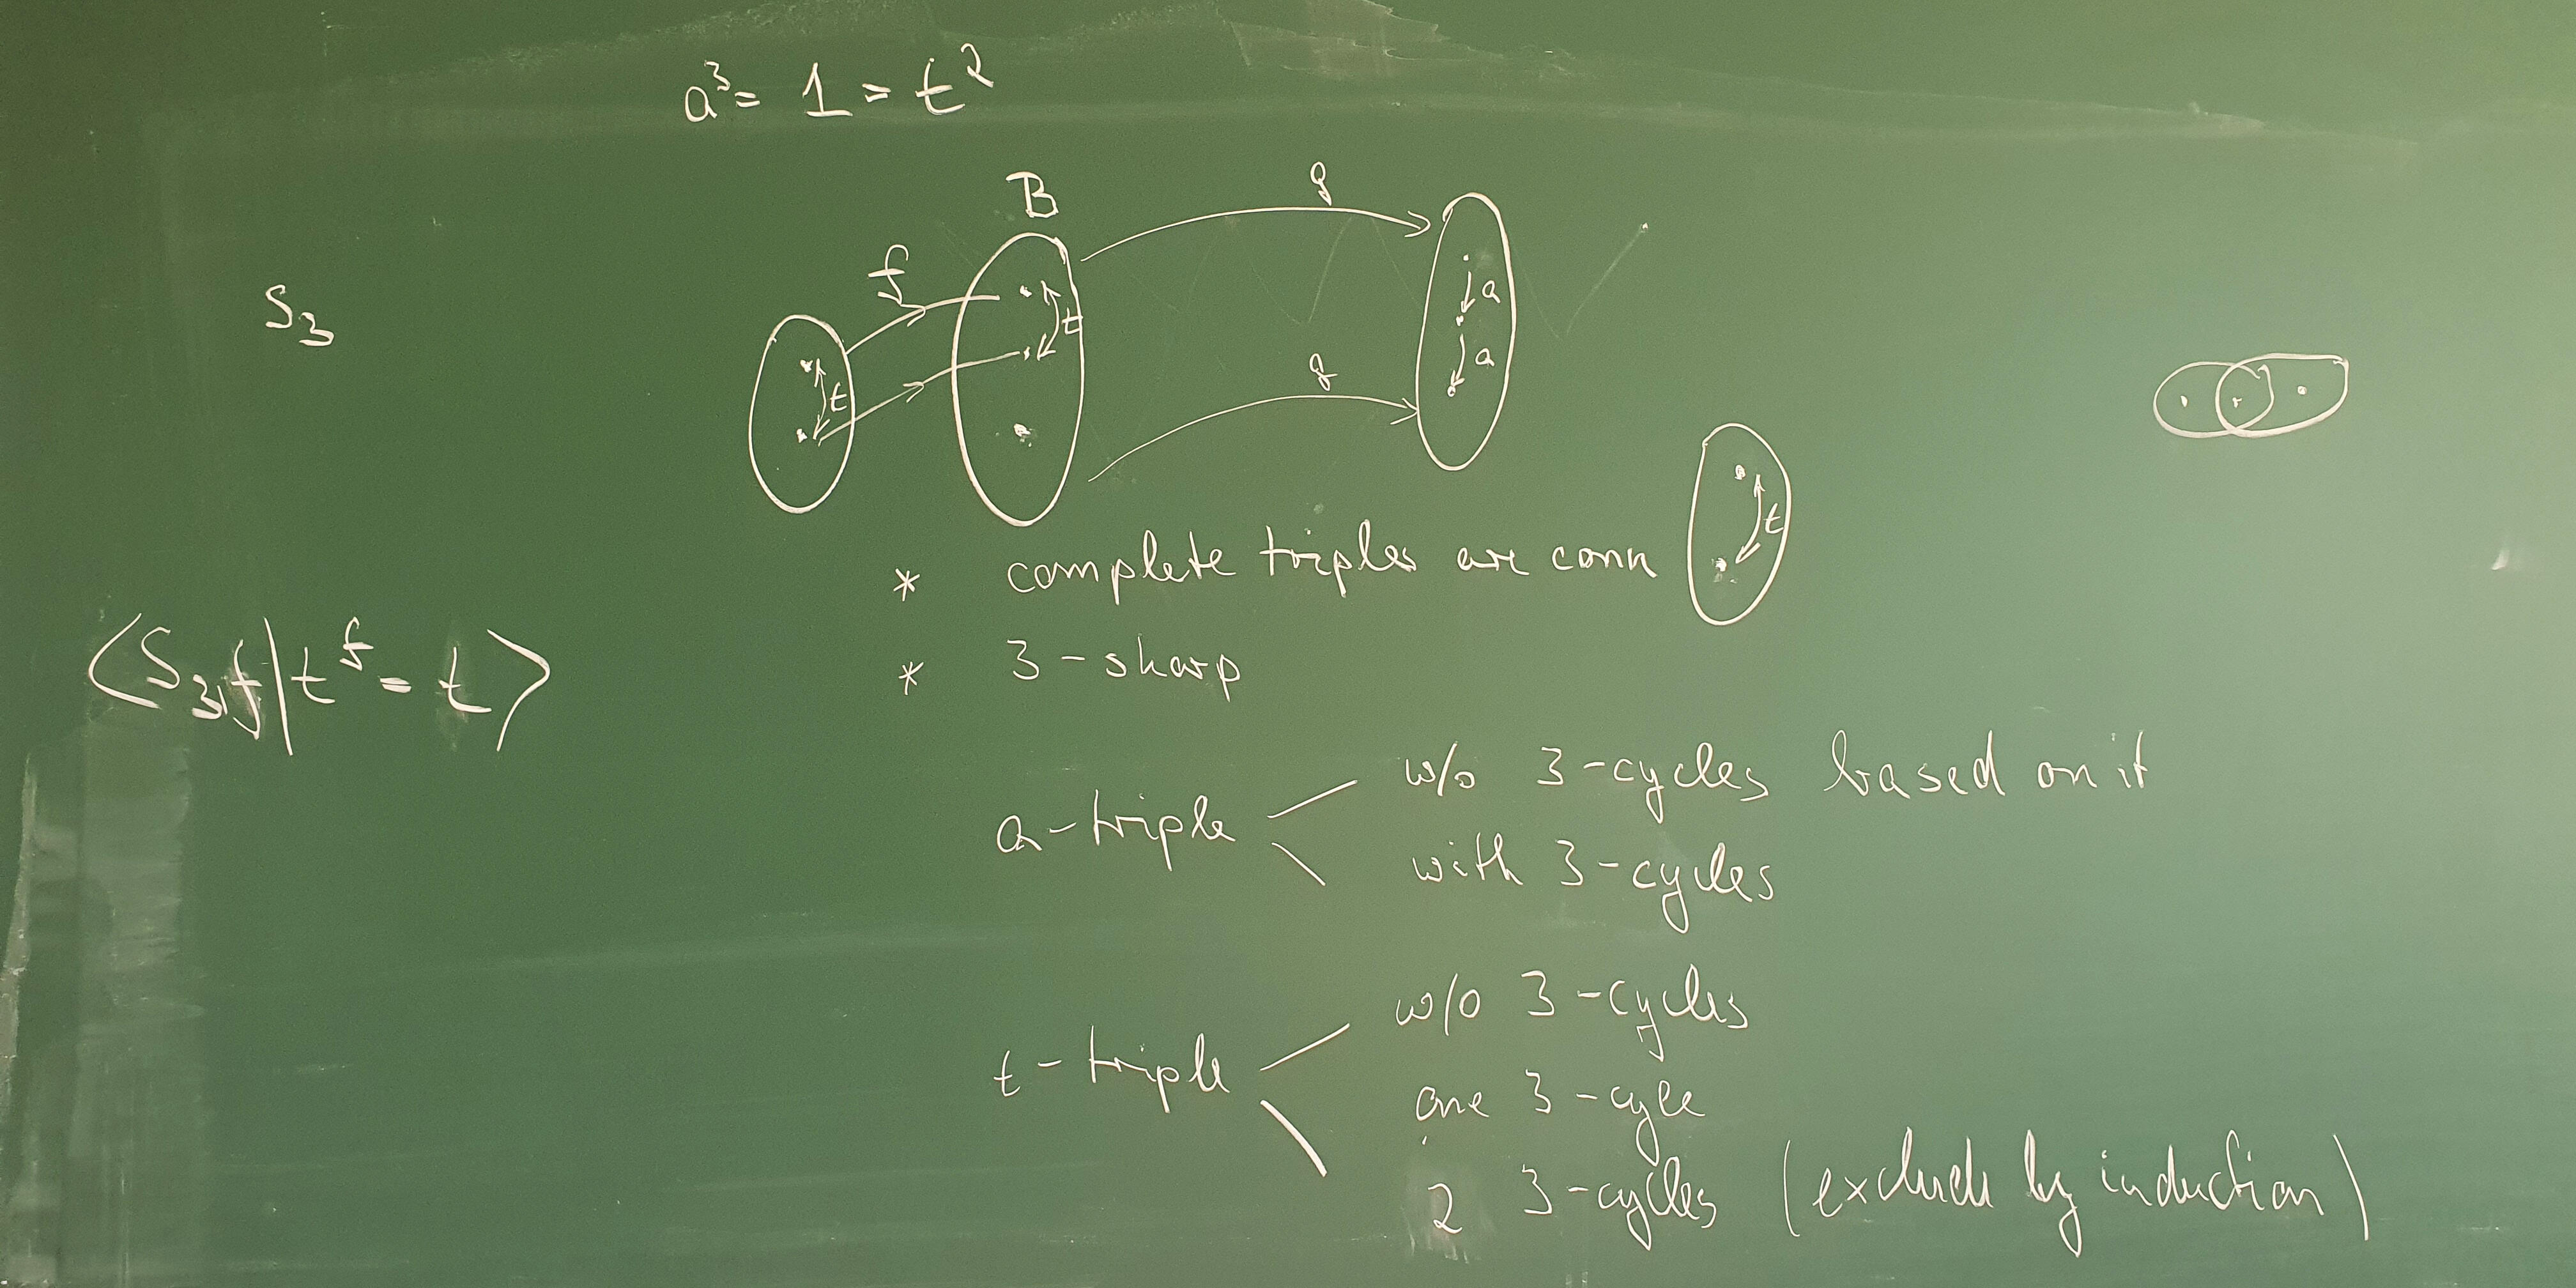 a³ = 1 = t²
B
f
g
S₃
t
t
a
a
g
t
* complete triples are conn
⟨S₃, f | t^f = t⟩
* 3-sharp
a-triple
w/o 3-cycles based on it
with 3-cycles
t-triple
w/o 3-cycles
one 3-cycle
2 3-cycles (exclude by induction)